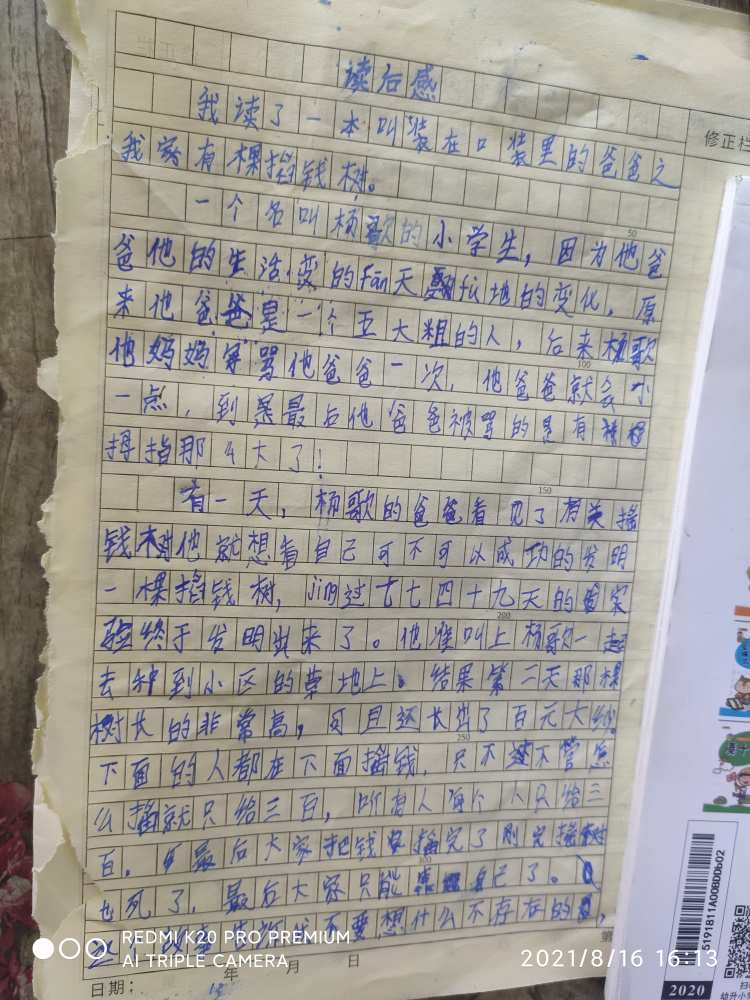 读后感
我读了一本叫装在口装里的爸爸之
我家有棵摇钱树。
一个名叫杨歌的小学生，因为他爸
爸他的生活变的fān天fù地的变化，原
来他爸爸是一个五大粗的人，后来杨歌
他妈妈每骂他爸爸一次，他爸爸就会小
一点，到最后他爸爸被骂的只有
拇指那么大了！
有一天，杨歌的爸爸看见了有关摇
钱树他就想着自己可不可以成功的发明
一棵摇钱树，jīng过七七四十九天的实
验终于发明出来了。他准叫上杨歌一起
去种到小区的草地上。结果第二天那棵
树长的非常高，可且还长出了百元大钞。
下面的人都在下面摇钱，只不过不管怎
么摇就只给三百，所有人每个人只给三
百，最后大家把钱摇完了刚完摇树
也死了，最后大家只能靠自己了。
不要想什么不存在的，
修正栏
50
100
150
200
250
300
第
日期：
年 月 日
REDMI K20 PRO PREMIUM
AI TRIPLE CAMERA
2021/8/16 16:13
5191811A00BD0b02
2020